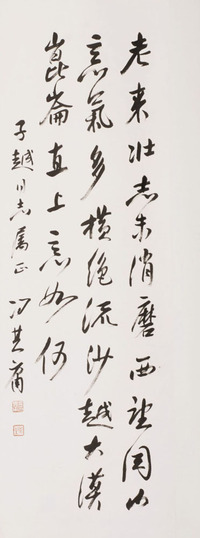 老来壮志未消磨西望关山
意氣多横绝流沙越大漠
崑崙直上意如何
子越同志属正冯其庸